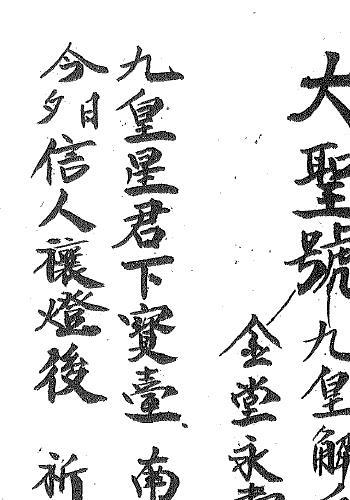 大聖號
九皇解
金堂永
九皇星君下寶臺 南
今夕日信人禳燈後 祈